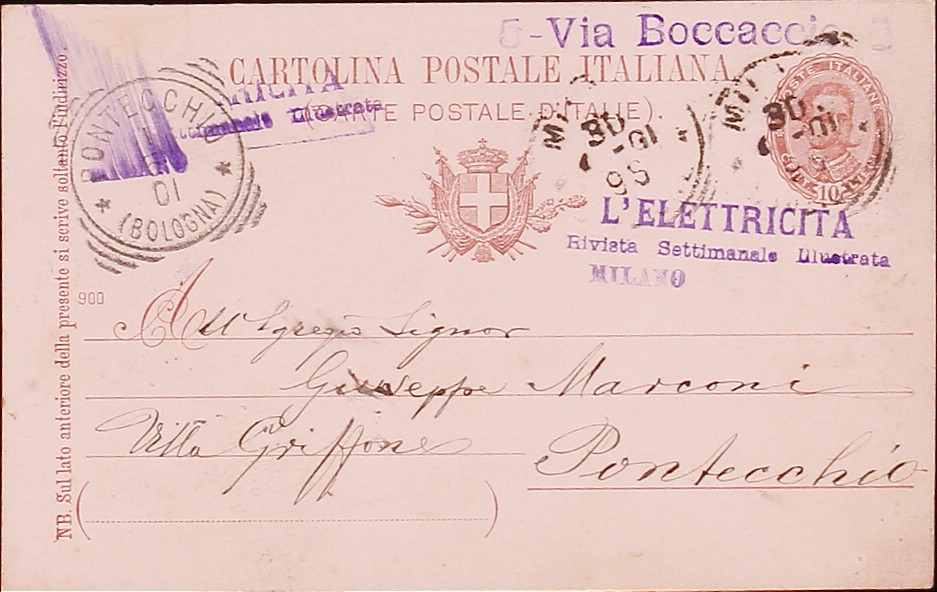 5-Via Boccaccio
CARTOLINA POSTALE ITALIANA
(CARTE POSTALE D'ITALIE).
RICITÀ
Settimanale Illustrata
PONTECCHIO
01
(BOLOGNA)
MIL
30
-01
95
MIL
30
-01
POSTE ITALIANE
10
L'ELETTRICITÀ
Rivista Settimanale Illustrata
MILANO
900
All'Egregio Signor
Giuseppe Marconi
Villa Griffone
Pontecchio
NB. Sul lato anteriore della presente si scrive soltanto l'indirizzo.